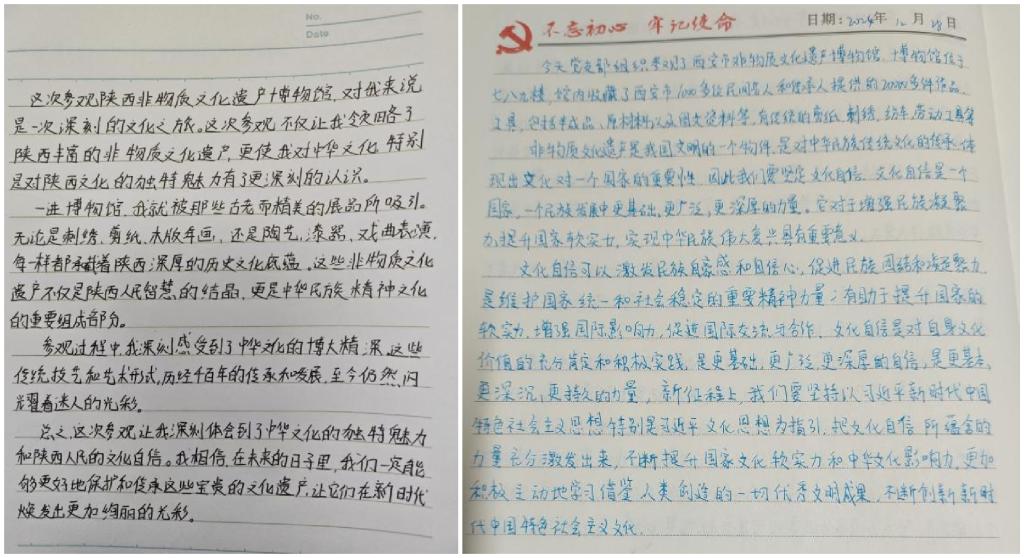 No.
Date
这次参观陕西非物质文化遗产博物馆,对我来说
是一次深刻的文化之旅。这次参观不仅让我领略了
陕西丰富的非物质文化遗产,更使我对中华文化,特别
是对陕西文化的独特魅力有了更深刻的认识。
一进博物馆,我就被那些古老而精美的展品所吸引。
无论是刺绣、剪纸、木版年画,还是陶艺、漆器、戏曲表演,
每一样都承载着陕西深厚的历史文化底蕴。这些非物质文化
遗产不仅是陕西人民智慧的结晶,更是中华民族精神文化
的重要组成部分。
参观过程中,我深刻感受到了中华文化的博大精深。这些
传统技艺和艺术形式,历经千百年的传承和发展,至今仍然闪
耀着迷人的光彩。
总之,这次参观让我深刻体会到了中华文化的独特魅力
和陕西人民的文化自信。我相信,在未来的日子里,我们一定能
够更好地保护和传承这些宝贵的文化遗产,让它们在新时代
焕发出更加绚丽的光彩。
不忘初心 牢记使命
日期:2024年12月28日
今天党支部组织参观了西安市非物质文化遗产博物馆,博物馆位于
七八九楼,馆内收藏了西安市1000多位民间艺人和传承人提供的20000多件作品、
工具,包括半成品、原材料以及图文资料等,有传统的剪纸、刺绣、纺车、劳动工具等
非物质文化遗产是我国文明的一个物件,是对中华民族传统文化的传承,体
现出文化对一个国家的重要性,因此我们要坚定文化自信。文化自信是一个
国家、一个民族发展中更基础,更广泛,更深厚的力量。它对于增强民族凝聚
力,提升国家软实力,实现中华民族伟大复兴具有重要意义。
文化自信可以激发民族自豪感和自信心,促进民族团结和凝聚力
是维护国家统一和社会稳定的重要精神力量;有助于提升国家的
软实力,增强国际影响力,促进国际交流与合作。文化自信是对自身文化
价值的充分肯定和积极实践,是更基础,更广泛,更深厚的自信,是更基本,
更深沉,更持久的力量,新征程上,我们要坚持以习近平新时代中国
特色社会主义思想特别是习近平文化思想为指引,把文化自信所蕴含的
力量充分激发出来,不断提升国家文化软实力和中华文化影响力,更加
积极主动地学习借鉴人类创造的一切优秀文明成果,不断创新新时
代中国特色社会主义文化.